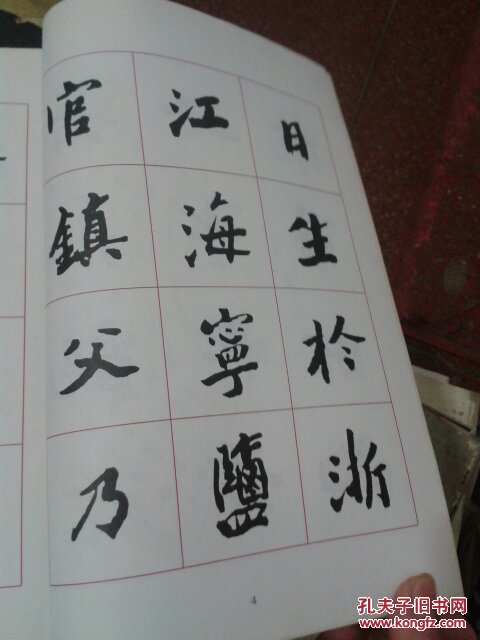 日生於浙
江海寧鹽
官鎮父乃
4
孔夫子旧书网
www.kongfz.com